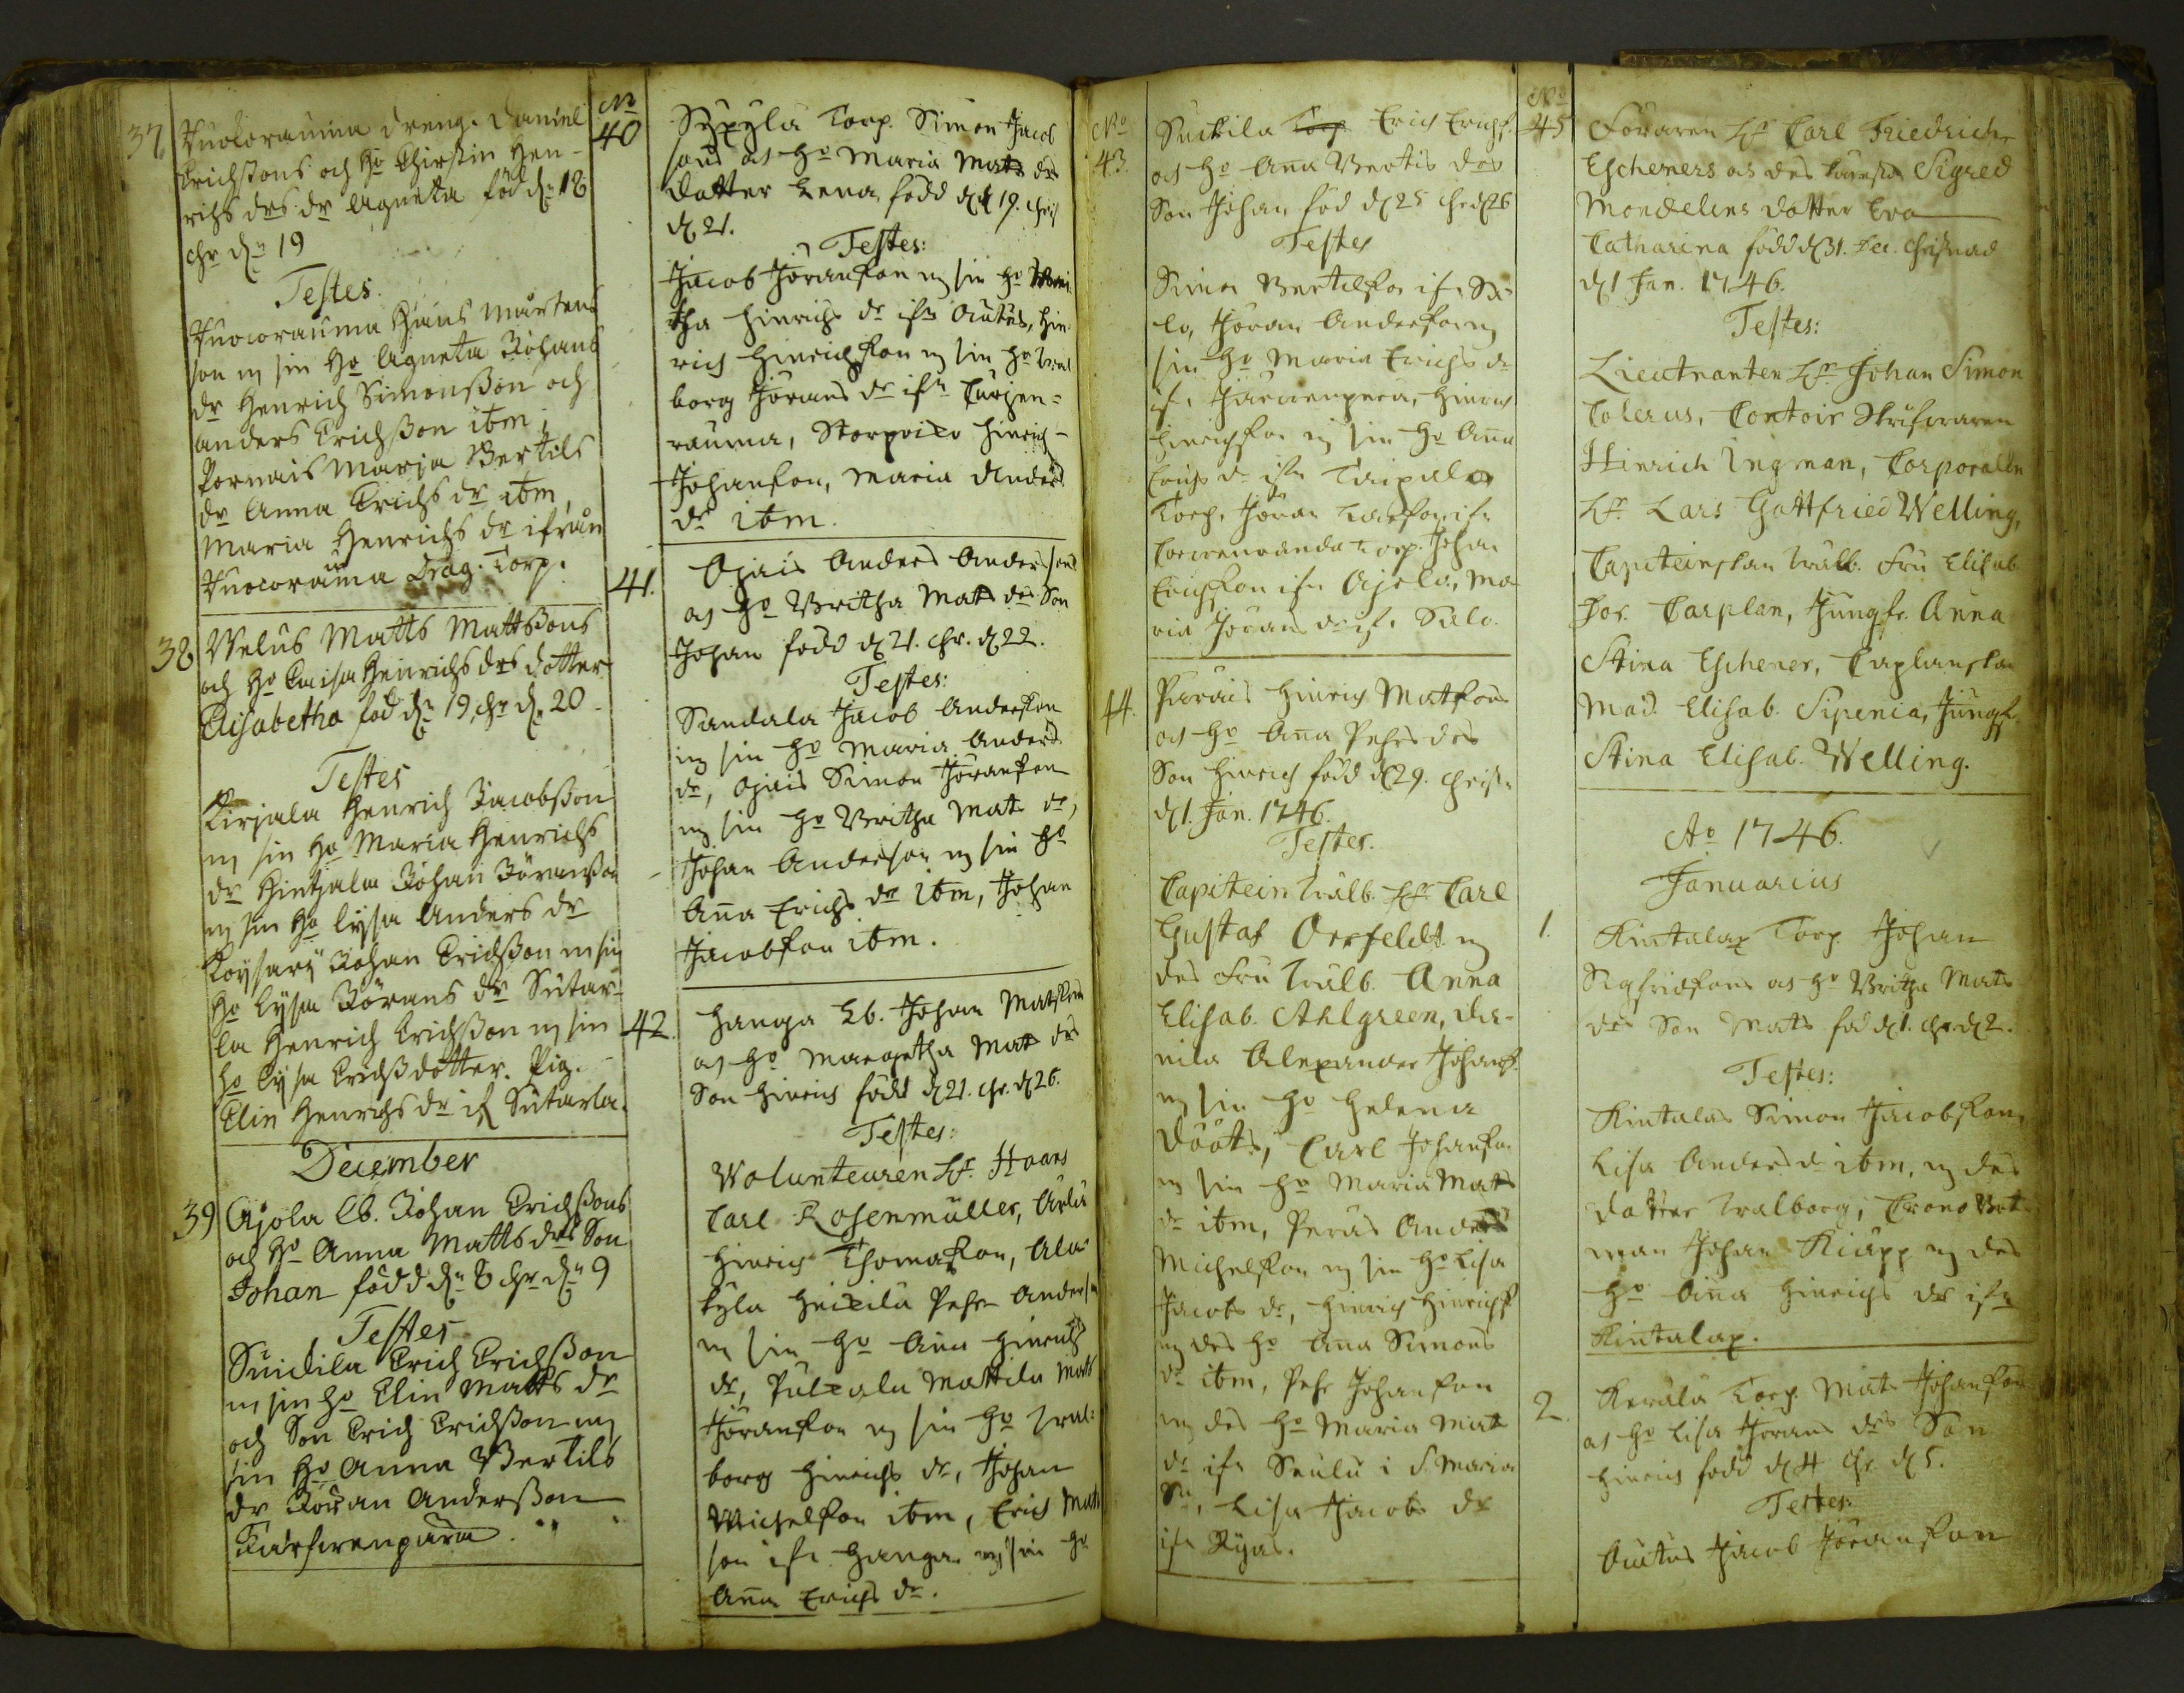 37. Kuocorauma dreng. Daniel
Erichßons och Ho Chirstin Hen-
richs drs dr Agneta föd dn 18
chr dn 19
Testes.
Kuocorauma Hans Mårtens
son m sin Ho Agneta Johans
dr Henrich Simonßon och
Anders Erichßon ibm;
Pornais Marja Bertils
dr Anna Erichs dr ibm,
Maria Henrichs dr ifrån
Kuocorauma Drag. Torp.
38. Velus Matts Mattßons
och Ho Caisa Henrichs drs dotter
Elisabetha föd dn 19, chr d. 20.
Testes
Kirjala Henrich Jacobßon
m sin Ho Maria Henrichs
dr Hintzala Johan Jöranßon
m sin Ho Lysa Anders dr
Johan Erichßon m sin
Ho Lysa Jörans dr Sutar-
la Henrich Erichßon m sin
Ho Lysa Erichßdotter. Pig.
Elin Henrichs dr if Sutarla.
December
39. Ajola Lb. Johan Erichßons
och Ho Anna Matts drs Son
Johan född dn 8 chr dn 9
Testes
Suickila Erich Erichßon
m sin Ho Elin Matts dr
och Son Erich Erichßon m
sin Ho Anna Bertils
dr Jöran Anderßon
No
40 Sypylä Torp. Simon Jacob
sons och Ho Maria Mats drs
datter Lena, född d 19. chris
d 21.
Testes:
Jacob Jöranson m sin Ho
tha Hinrichs dr ifn Autus, Hin
rich Hinrichson m sin Ho Wal
borg Jörans dr ifn Curjen=
rauma, Hinrich
Johanson, Maria Anders
dr ibm.
41. Ojais Anders Andersons
och Ho Britha Mats drs Son
Johan född d 21. chr. d 22.
Testes:
Sandala Jacob Anderson
m sin Ho Maria Anders
dr, Ojais Simon Jöranson
m sin Ho Britha Mats dr,
Johan Anderson m sin Ho
Anna Erichs dr ibm, Johan
Jacobson ibm.
42. Hanga Lb. Johan Matsson
och Ho Margetha Mats drs
Son Hinrich född d 21. chr. d 26.
Testes:
Volunteuren Hr. Hans
Carl Rosenmüller,
Hinrich Thomasson, Ala
kyla Heikilä Pehr Anderson
m sin Ho Anna Hinrichs
dr, Mattila Mats
Jöranson m sin Ho Wal=
borg Hinrichs dr, Johan
Michelson ibm, Erich Mats
son ifn Hanga m sin Ho
Anna Erichs dr.
No
43. Suikila Erich Erichs.
och Ho Anna Bertils drs
Son Johan föd d 25 chr d 26
Testes
Simon Bertilson ifn Sa-
lo, Jöran Anderson m
sin Ho Maria Erichs dr
ifn Järvenperä, Hinrich
Hinrichson m sin Ho Anna
Erichs dr ifn Taipale
Torp. Jöran Larson ifn
Torp. Johan
Erichson ifn Ajola, Ma
ria Jörans dr ifn Salo.
44. Parais Hinrich Matsons
och Ho Anna Pehrs drs
Son Hinrich född d 29. christn
d 1. Jan. 1746.
Testes.
Capitein Wälb. Hr Carl
Gustaf Orfeldt m
des Fru Wälb. Anna
Elisab. Ahlgreen,
Alexander Johans.
m sin Ho Helena
, Carl Johanson
m sin Ho Maria Mats
dr ibm, Peräs Anders
Michelson m sin Ho Lisa
Jacobs dr, Hinrich Hinrichs.
m des Ho Anna Simons
dr ibm, Pehr Johanson
m des Ho Maria Mats
dr ifn Saulu i S. Maria
Sn, Lisa Jacobs dr
ifn Ryas.
No
45 Föraren Hr Carl Friedrich
Escheners och des Sigred
Mondelins datter Eva
Catharina född d 31. Dec. christnad
d 1 Jan. 1746.
Testes:
Lieutnanten Hr Johan Simon
Tolerus, Contoir Skrifvaren
Hinrich Ingman, Corporalen
Hr. Lars Gottfried Welling,
Capiteinskan Wälb. Fru Elisab.
Dor. Carplan, Jungfr. Anna
Stina Eschener, Caplanskan
Mad. Elisab. Sipenia, Jungf.
Stina Elisab. Welling.
Ao 1746.
Januarius
1. Kintalax Torp. Johan
Sigfridsons och Ho Britha Mats
drs Son Mats föd d 1. chr. d 2.
Testes:
Kintalas Simon Jacobson,
Lisa Anders dr ibm, m des
datter Walborg, Crono Båt
man Johan Kiäpp m des
Ho Anna Hinrichs dr ifn
Kintalax.
2. Kerälä Torp. Mats Johanson
och Ho Lisa Jörans drs Son
Hinrich född d 4 chr. d 5.
Testes:
Autus Jacob Jöranson